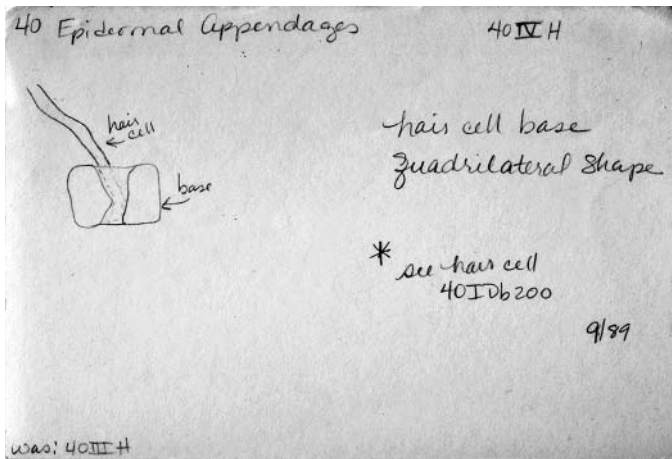 40 Epidermal Appendages
40 IV H
hair
cell
base
hair cell base
quadrilateral shape
* see hair cell
40IDb200
9/89
was: 40III H